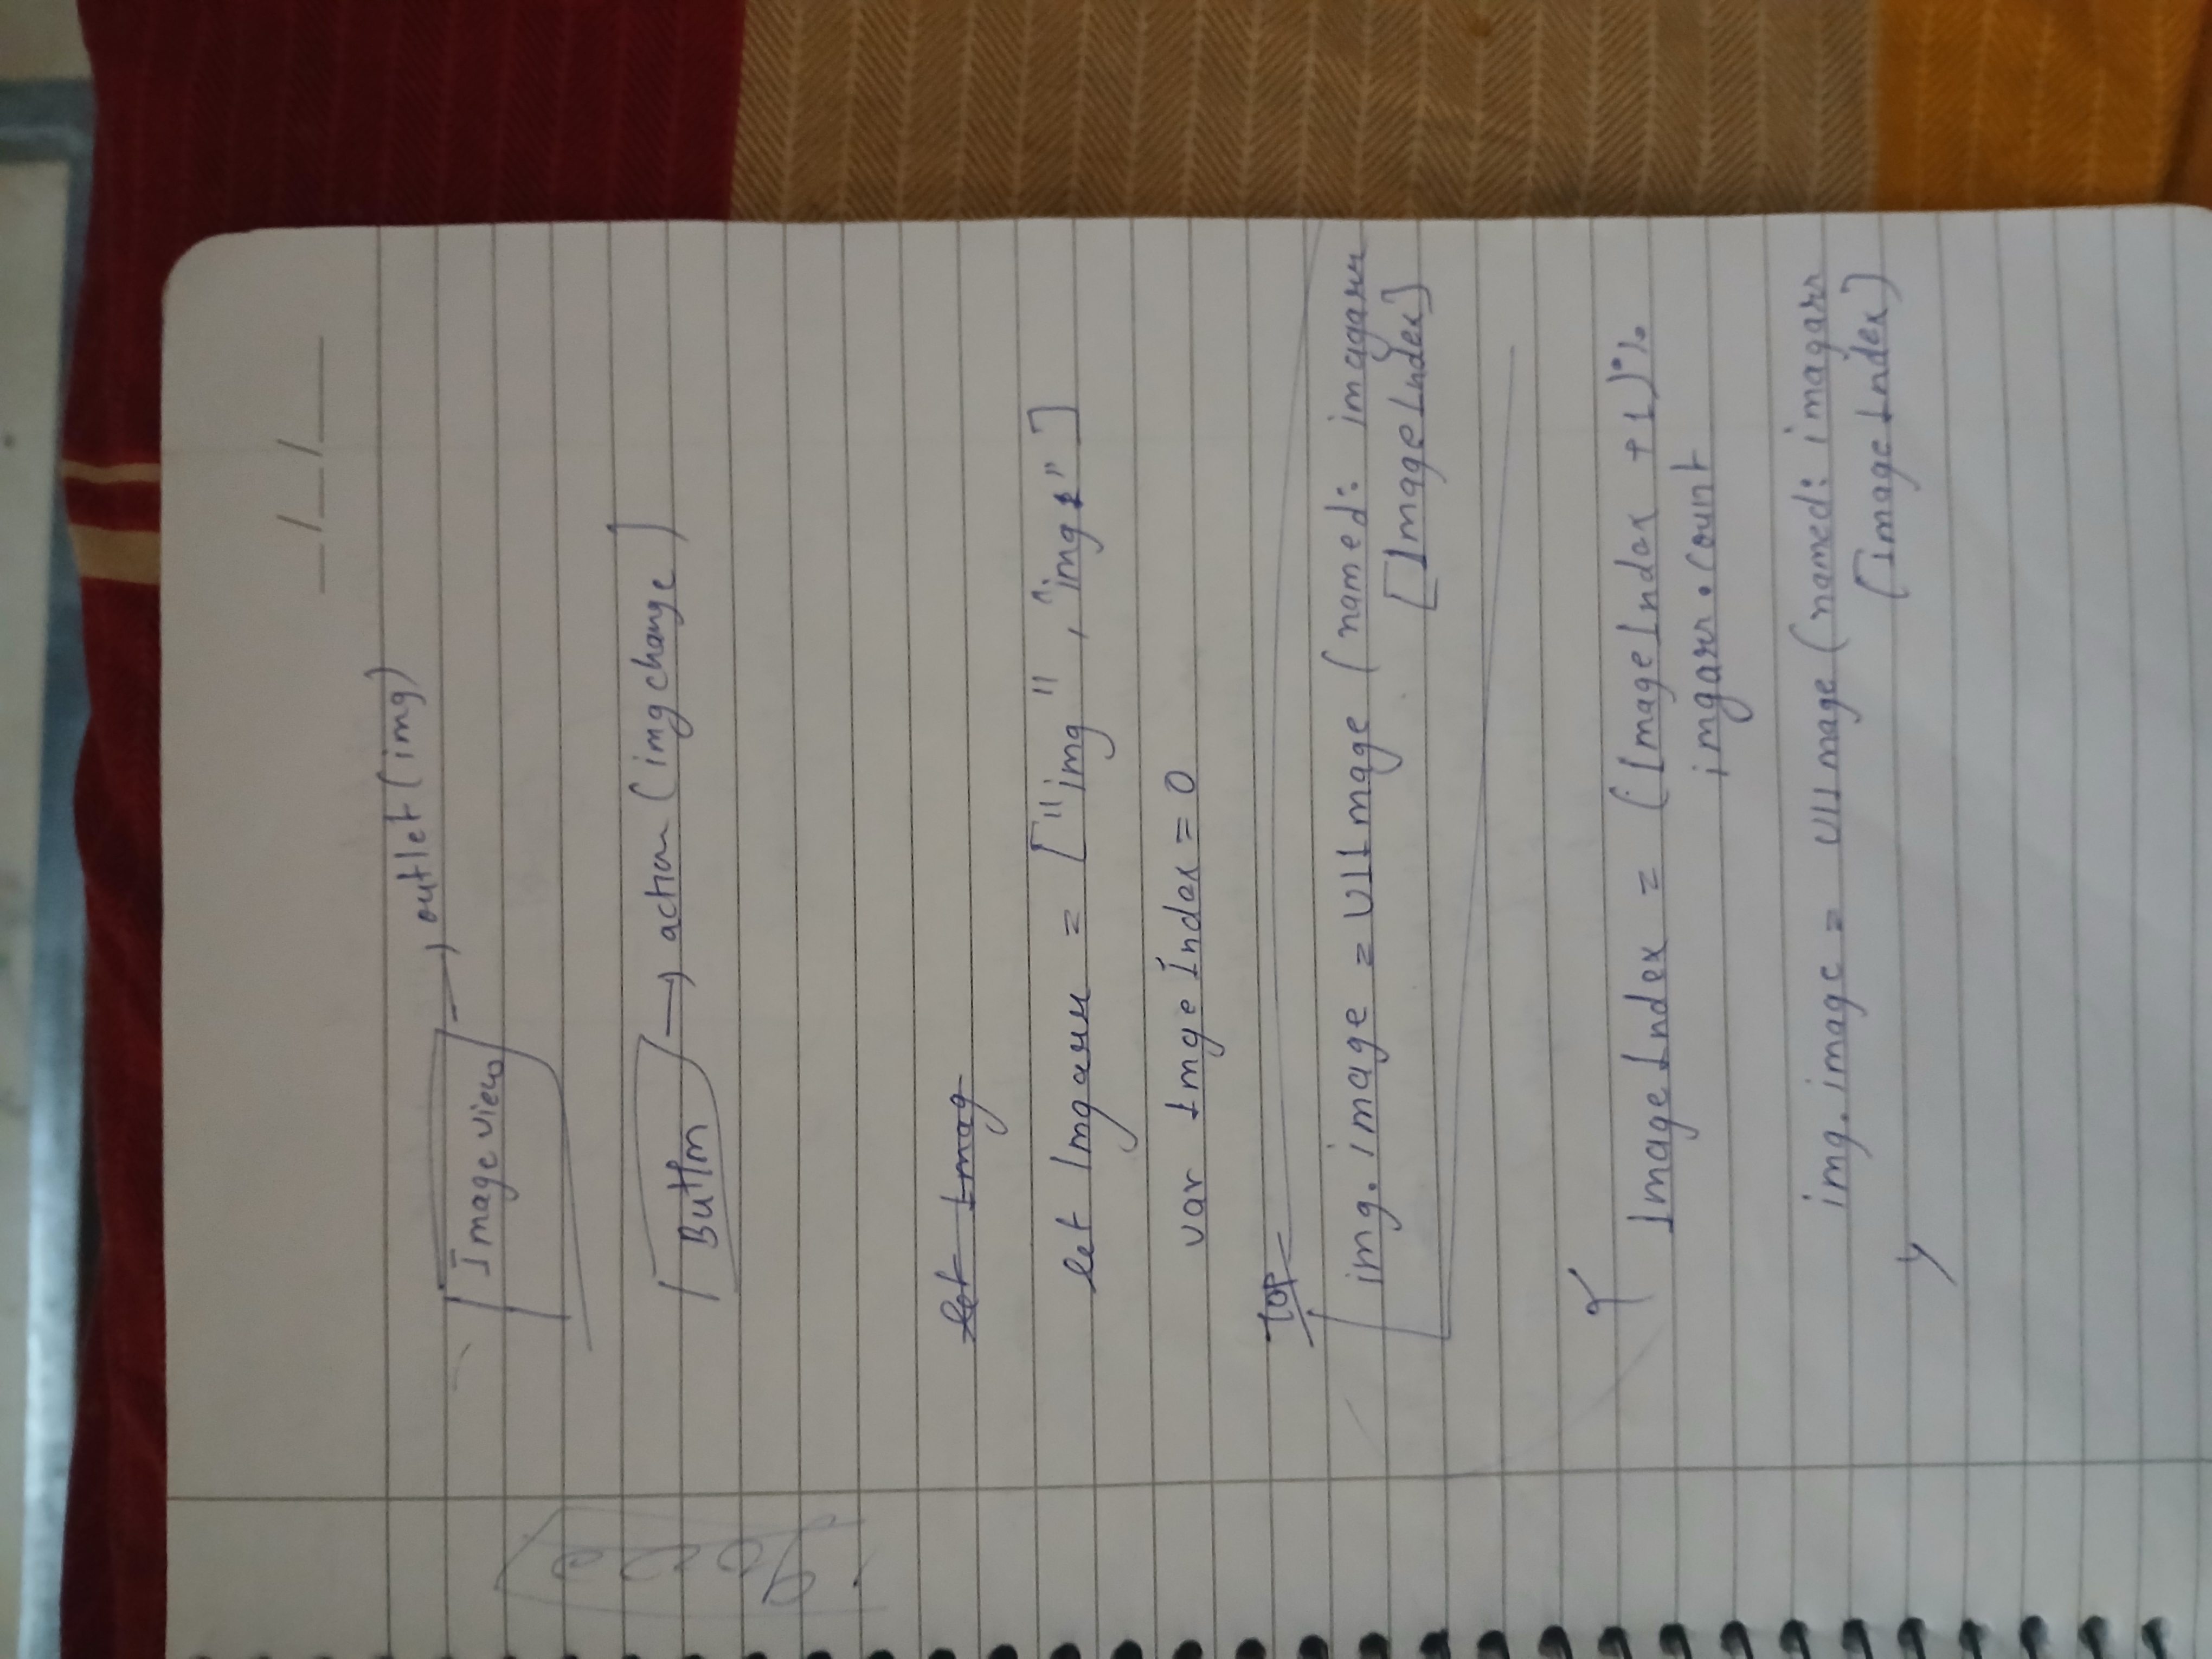 _/_/__
Image view → outlet (img)
Button → action (imgchange)
let Imag
let Imgarr = ["img", "img2"]
var ImgeIndex = 0
TOP
img.image = UIImage (named: imagarr
[ImageIndex]
{
ImageIndex = (ImageIndex +1)%
imgarr.count
img.image = UIImage (named: imagarr
[ImageIndex]
}